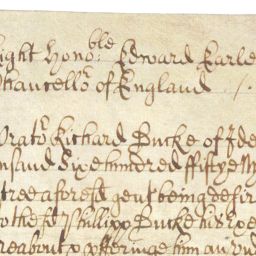 ight Hono:ble Edward Earle
Chancello:r of England
Orato:r Richard Bucke of
sand Sixe hundred fiftye
tree aforesd gent being desir
the sd Phillipp Bucke his
about & offeringe him an